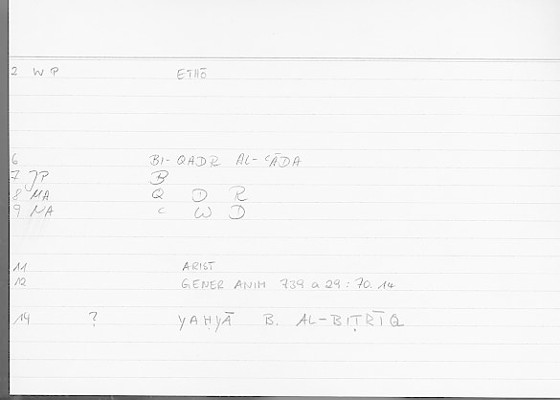 2 WP ETHŌ
6 BI-QADR AL-ʿĀDA
7 JP B
8 MA Q D R
9 NA ʿ W D
11 ARIST
12 GENER ANIM 739 a 29 : 70.14
14 ? YAḤYĀ B. AL-BIṬRĪQ